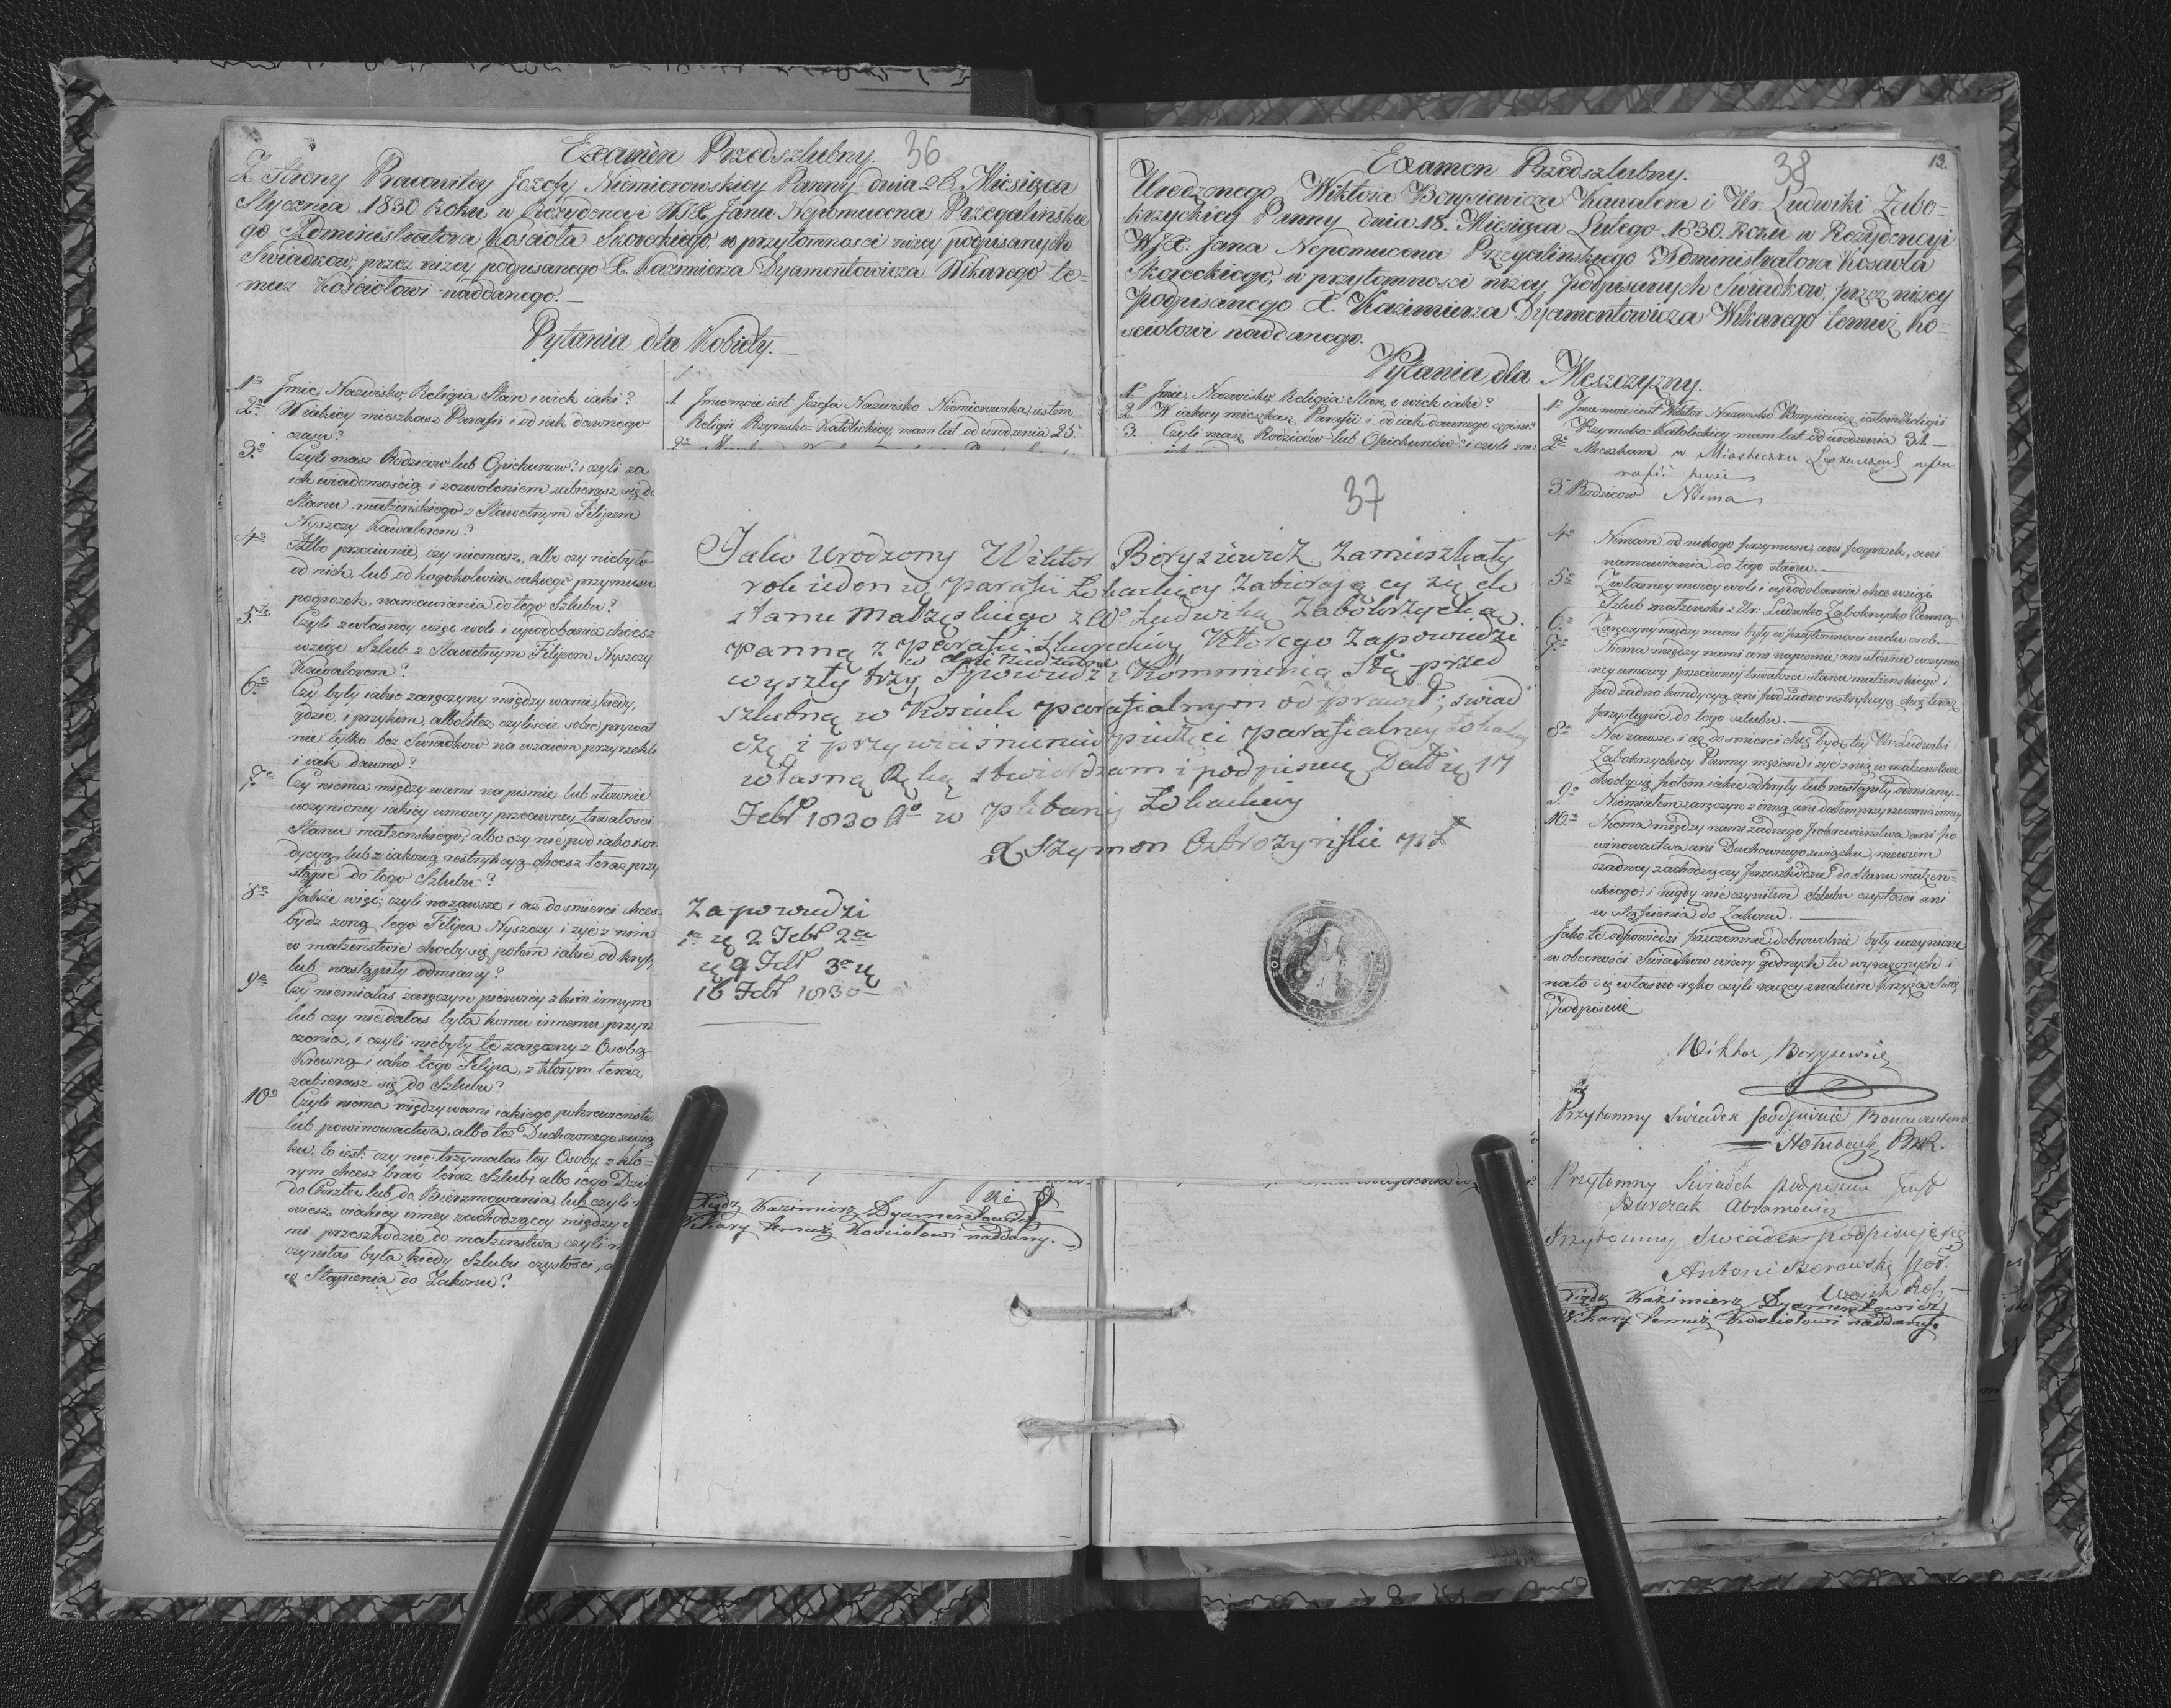 Examen Przedszlubny. 36
Z Strony Pracowitey Jozefy Niemierowskiey Panny dnia 28. Miesiąca
Stycznia 1830 Roku w Rezydencyi WJX. Jana Nepomucena Przegalinskie
go Administratora Kosciola Skoreckiego, w przytomnosci niżey podpisanych
Swiadkow przez niżey podpisanego X. Kazimierza Dyamentowicza Wikarego te=
muz Kosciołowi naddanego. —
Pytania dla Kobiety. —
1o Jmie, Nazwisko, Religia Stan i wiek iaki?
2o W iakiey mieszkasz Parafii i od iak dawnego
czasu?
3o Czyli masz Rodzicow lub Opiekunow? i czyli za
ich wiadomością i zezwoleniem zabierasz się do
Stanu małżenskiego z Sławetnym Filipem
Nyszczy Kawalerem?
4o Albo przeciwnie, czy niemasz, albo czy niebyło
od nich, lub od kogokolwiek iakiego przymusu
pogrozek, namawiania do tego Szlubu?
5to Czyli z własney więc woli i upodobania chcesz
wziąść Szlub z Sławetnym Filipem Nyszczy
Kawalerem?
6o Czy były iakie zaręczyny między wami, kiedy,
gdzie, i przykim, albo też, czyliscie sobie prywat
nie tylko bez Swiadkow na wzaiem przyrzekli
i iak dawno?
7o Czy niema między wami na pismie lub słownie
uczynioney iakiey umowy przeciwney trwałosci
Stanu małzenskiego, albo czy nie pod iako kon
dycyą, lub z iakową restrykcyą chcesz teraz przy
stąpić do tego Szlubu?
8o Jakże więc, czyli nazawsze i aż do smierci chcesz
bydz zoną tego Filipa Nyszczy i zyc z nim
w małzenstwie chocby się potem iakie odkryły
lub nastąpiły odmiany?
9o Czy niemiałas zaręczyn pierwiey z kim innym
lub czy nie dałas była komu innemu przyrz
czenia, i czyli niebyły te zaręczyny z Osobą
Krewną i iako tego Filipa, z ktorym teraz
zabierasz się do Szlubu?
10o Czyli niema między wami iakiego pokrewienstw
lub powinowactwa, albo też Duchownego zwią
ku, to iest: czy nie trzymałas tey Osoby z kto=
rym chcesz brać teraz Szlub, albo iego Dzie
do Chrztu lub do Bierzmowania, lub czyli n
wiesz o iakiey inney zachodzącey między w
mi przeszkodzie do małzenstwa czyli n
czyniłas była kiedy Szlubu czystości, a
w Stąpienia do Zakonu?
1. Jmie moie iest Jozefa Nazwisko Niemierowska, iestem
Religii Rzymsko=Katolickiey, mam lat od urodzenia 25.
Xiądz Kazimierz Dyamentowicz
Wikary temuż Kosciołowi naddany.
37
Jako Urodzony Wiktor Boryziewicz zamieszkały
rok ieden w parafii Łohackiey zabieraiący się do
stanu Małżęskiego z Wą Ludwiką Zabokrzycką
panną z parafii Skoreckiey, Ktorego Zapowiedzi
wyszły trzy, Spowiedz i Kommunią Stą przed
szlubną w Kosciele parafialnym odprawił; swiad
czę i przy wycisnieniu pieczęci parafialney Łohackiey
własną Ręką stwierdzam i podpisuię Datt ią 17
Febr 1830 Ao w plebanij Łohackiey
X Szymon Ostrozyński
Zapowiedzi
1a ią 2 Febr 2a
ią 9 Febr 3a ią
16 Febr 1830
Examen Przedszlubny. 38 13.
Urodzonego Wiktora Borysiewicza Kawalera i Ur. Ludwiki Zabo=
krzyckiey Panny dnia 18. Miesiąca Lutego 1830. Roku w Rezydencyi
WJX. Jana Nepomucena Przegalinskiego Administratora Kosciola
Skoreckiego, w przytomnosci niżey podpisanych Swiadkow, przez niżey
podpisanego X. Kazimierza Dyamentowicza Wikarego temuż Ko=
sciołowi naddanego.
Pytania dla Meszczyzny.
1o Jmie, Nazwisko, Religia Stan, i wiek iaki?
2. W iakiey mieszkasz Parafii i od iak dawnego czasu?
3. Czyli masz Rodzicow lub Opiekunow? i czyli za
1o Jmie moie iest Wiktor Nazwisko Borysiewicz iestem Religii
Rzymsko=Katolickiey mam lat od urodzenia 31. —
2o Mieszkam w Miasteczku w pa
rafii
3o Rodzicow Niema
4o Nimam od nikogo przymusu, ani pogrozek, ani
namawiania do tego stanu. —
5o Z własney moiey woli i upodobania chce wziąść
Szlub małzenski z Ur. Ludwiką Zabokrzycką Panną
6o Zaręczyny między nami były w przytomnosci wielu osob. —
7o Niema między nami ani na pismie, ani słownie uczynio
ney umowy przeciwney trwałosci stanu małzenskiego i
pod zadną kondycyą ani pod zadną restrykcyą chcę teraz
przystąpić do tego szlubu. —
8o Na zawsze i aż do smierci chcę bydz tey Ur. Ludwiki
Zabokrzyckiey Panny mężem i zyc z nią w małzenstwie
chocby się potem iakie odkryły lub nastąpiły odmiany. —
9o Niemiałem zaręczyn z inną ani dałem przyrzeczenia inney
10o Niema między nami zadnego pokrewienstwa ani po
winowactwa ani Duchownego związku, niewiem
o zadney zachodzącey przeszkodzie do Stanu małzen=
skiego, i nigdy nie czyniłem Szlubu czystosci ani
wstąpienia do Zakonu. —
Jako te odpowiedzi przezemnie dobrowolnie były uczynione
w obecnosci Swiadkow wiary godnych tu wyrażonych i
na to się własną ręką czyli raczey znakiem Krzyża Swię
Podpisuie
Wiktor Borysewicz
Przytomny Swiadek podpisuie Bonawentura
Hołubecki
Przytomny Swiadek podpisuie Just
Burczak Abramowicz
Przytomny Swiadek podpisuię się
Antoni Borowski
Xiądz Kazimierz Dyamentowicz
Wikary temuż Kosciołowi naddany.